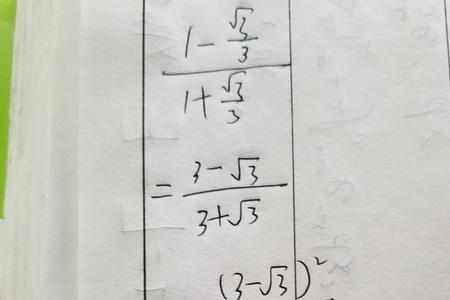 1 - √3/3
1 + √3/3
= 3 - √3
3 + √3
(3-√3)²